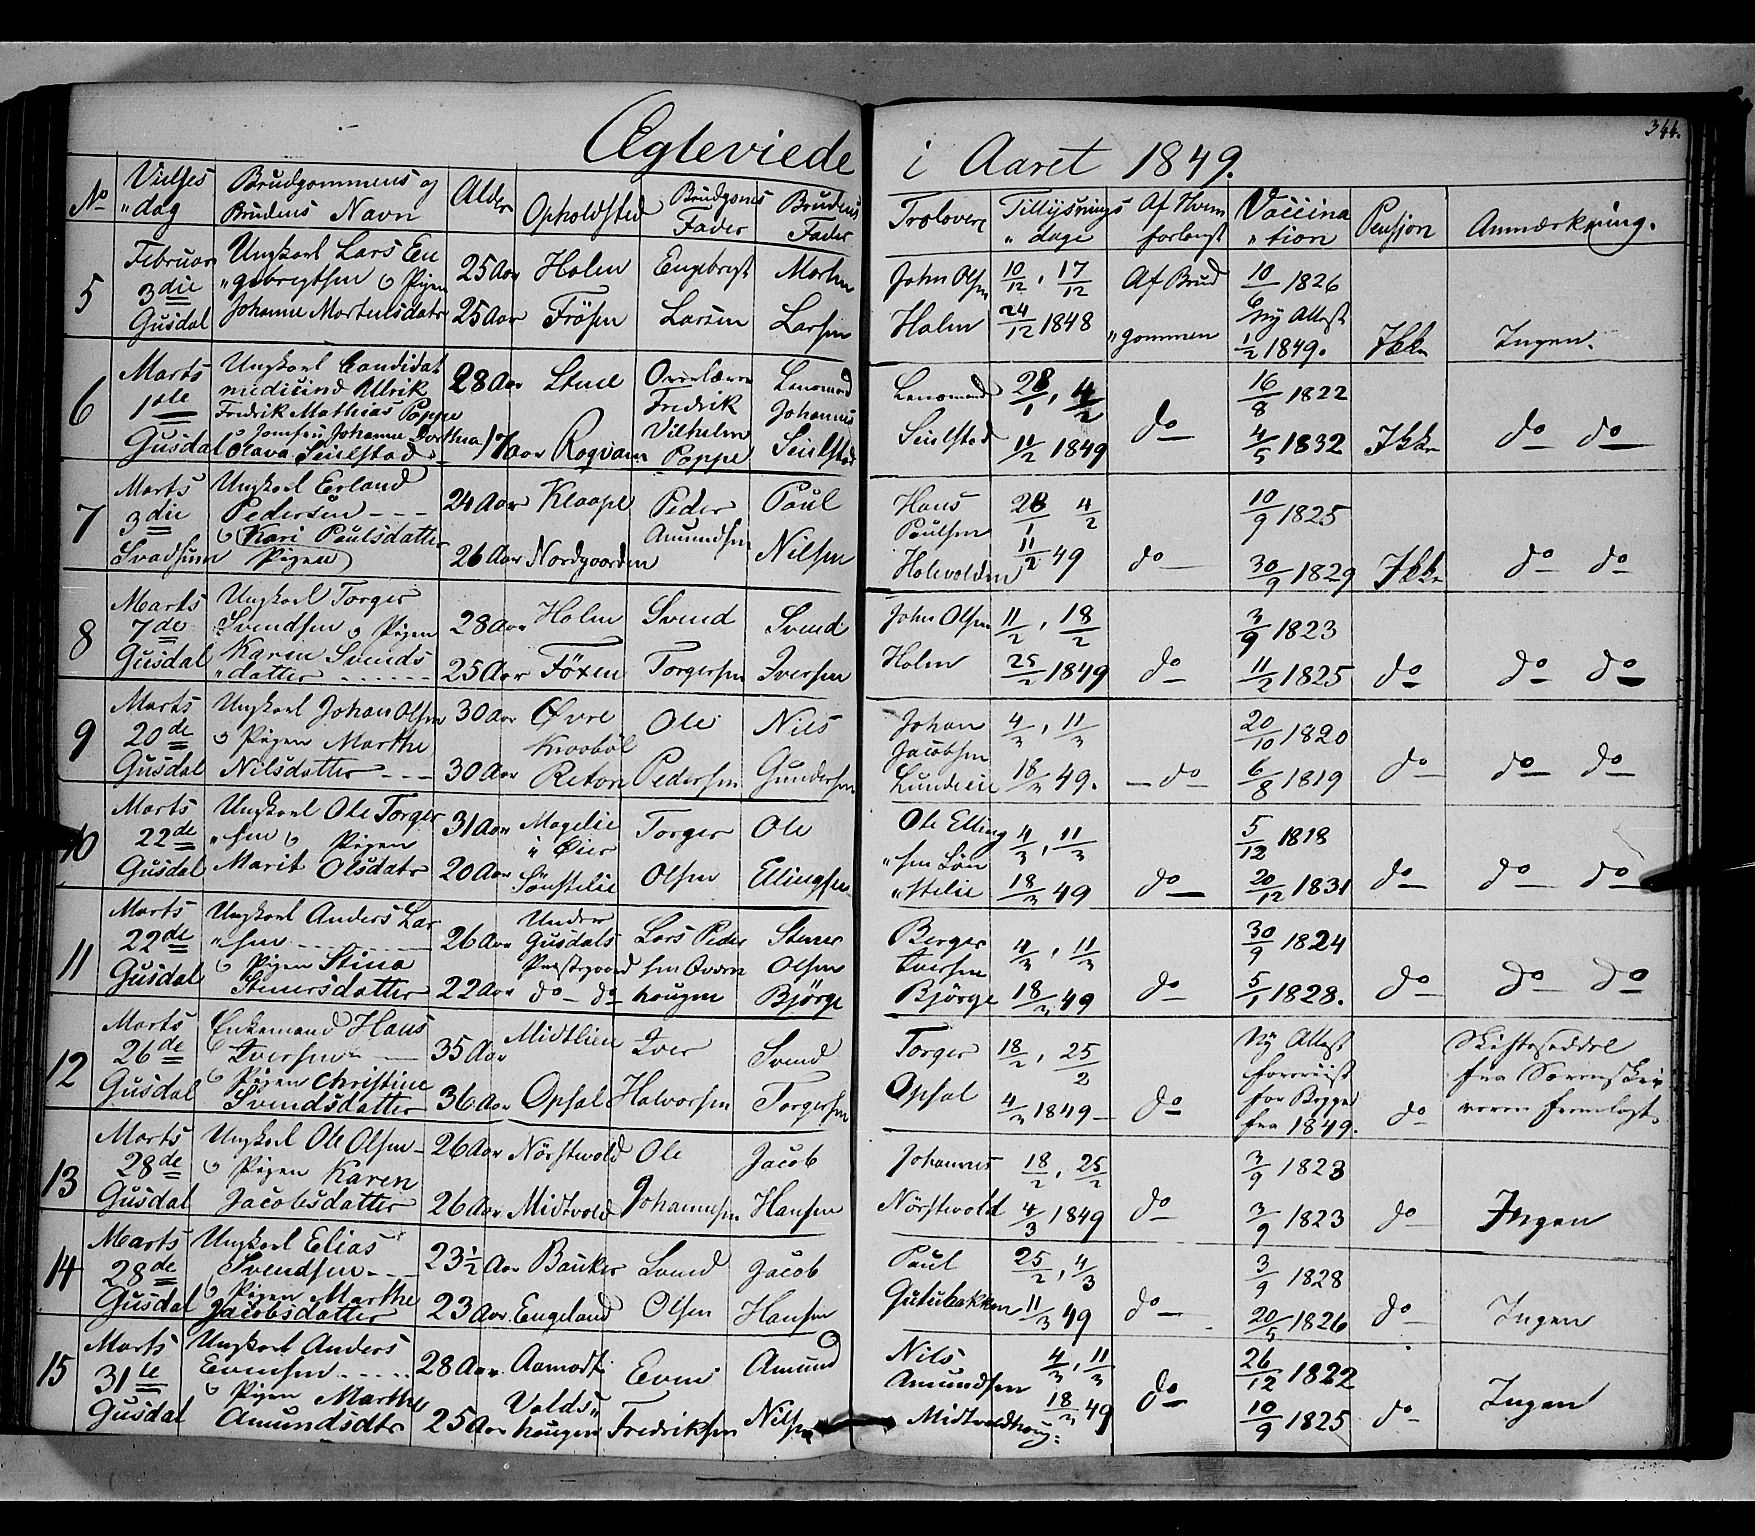 344.
Ægteviede i Aaret 1849.
No Vielses dag Brudgommens og Brudens Navn Alder Opholdsted Brudgoms Fader Brudens Fader Trolovere Tillysnings dage Af Hvem forlangt Vaccina tion Pensjon Anmærkning.
5 Februar Ungkarl Lars En 25 Aar Holm Engebregt Morten John Olsen 10/12, 17/12 Af Brud 10/6 1826
3die gebregtsen og Pigen Ny Attest
Gusdal Johanne Mortensdatr 25 Aar Frösen Larsen Larsen Holm 24/12 1848 gommen 1/2 1849. Ikke Ingen.
6 Marts Ungkarl Candidat 28 Aar Stene Overlærer Lensmand Lensmand 28/1, 4/2 16/8 1822
1ste medicind Ullrik Fredrik Johannes
Fredrik Mathias Poppe Vilhelm
Gusdal og Jomfru Johanne Dorthea 17 Aar Rogvam Poppe Seielstad Seielstad 11/2 1849 do 4/5 1832 Ikke do do
Olava Seielstad
7 Marts Ungkarl Erland 24 Aar Klaape Peder Paul Hans 28/1 4/2 10/9 1825
3die Pedersen Amundsen Paulsen
Svadsum og Kari Paulsdatter 26 Aar Nordgaarden Nilsen Holevolden 11/2 49 do 30/9 1829 Ikke do do
Pigen
8 Marts Ungkarl Torger 28 Aar Holm Svend Svend John Olsen 11/2, 18/2 3/9 1823
7de Svendsen og Pigen
Gusdal Karen Svends datter 25 Aar Föxen Torgersen Iversen Holm 25/2 1849 do 11/2 1825 do do do
9 Marts Ungkarl Johan Olsen 30 Aar Övre Ole Nils Johan 4/3, 11/3 20/10 1820
20de og Pigen Marthe Kraaböl Jacobsen
Gusdal Nilsdatter 30 Aar Reton Pedersen Gundersen Lundeie 18/3 49. do 6/8 1819 do do do
10 Marts Ungkarl Ole Torger 31 Aar Magelie Torger Ole Ole Elling 4/3, 11/3 5/12 1818
22de sen og Pigen Öier sen Lön
Gusdal Marit Olsdatr 20 Aar Sönstelie Olsen Ellingsen stelie 18/3 49 do 20/12 1831 do do do
11 Marts Ungkarl Anders Lar 26 Aar Under Lars Peder Stener Berger 4/3, 11/3 30/9 1824
22de sen Gusdals
og Pigen Stina Præstegaard sen Olsen Iversen
Gusdal Stenersdatter 22 Aar do do hougen Björge Björge 18/3 49 do 5/1 1828. do do do
12 Marts Enkemand Hans 35 Aar Midtlien Iver Svend Torger 18/2, 25/2 Ny Attest Skifteseddel
26de Iversen foreviist fra Sorenskri
og Pigen Christine for Begge veren fremlagt.
Gusdal Svendsdatter 36 Aar Opsal Halvorsen Torgersen Opsal 4/3 1849 do fra 1849. do
13 Marts Ungkarl Ole Olsen 26 Aar Nörstevold Ole Jacob Johannes 18/2, 25/2 3/9 1823
28de og Pigen Karen
Gusdal Jacobsdatter 26 Aar Midtvold Johannesen Hansen Nörstevold 4/3 1849 do 3/9 1823 do Ingen
14 Marts Ungkarl Elias 23 1/2 Aar Bauker Svend Jacob Paul 25/2, 4/3 3/9 1828
28de Svendsen
og Pigen Marthe
Gusdal Jacobsdatter 23 Aar Engeland Olsen Hansen Gutubakken 11/3 49 do 20/5 1826 do Ingen
15 Marts Ungkarl Anders 28 Aar Aamodt Even Amund Nils 4/3, 11/3 26/12 1822
31te Evensen Amundsen
og Pigen Marthe Volds
Gusdal Amundsdtr 25 Aar hougen Fredriksen Nilsen Midtvoldhoug: 18/3 49 do 10/9 1825 do Ingen